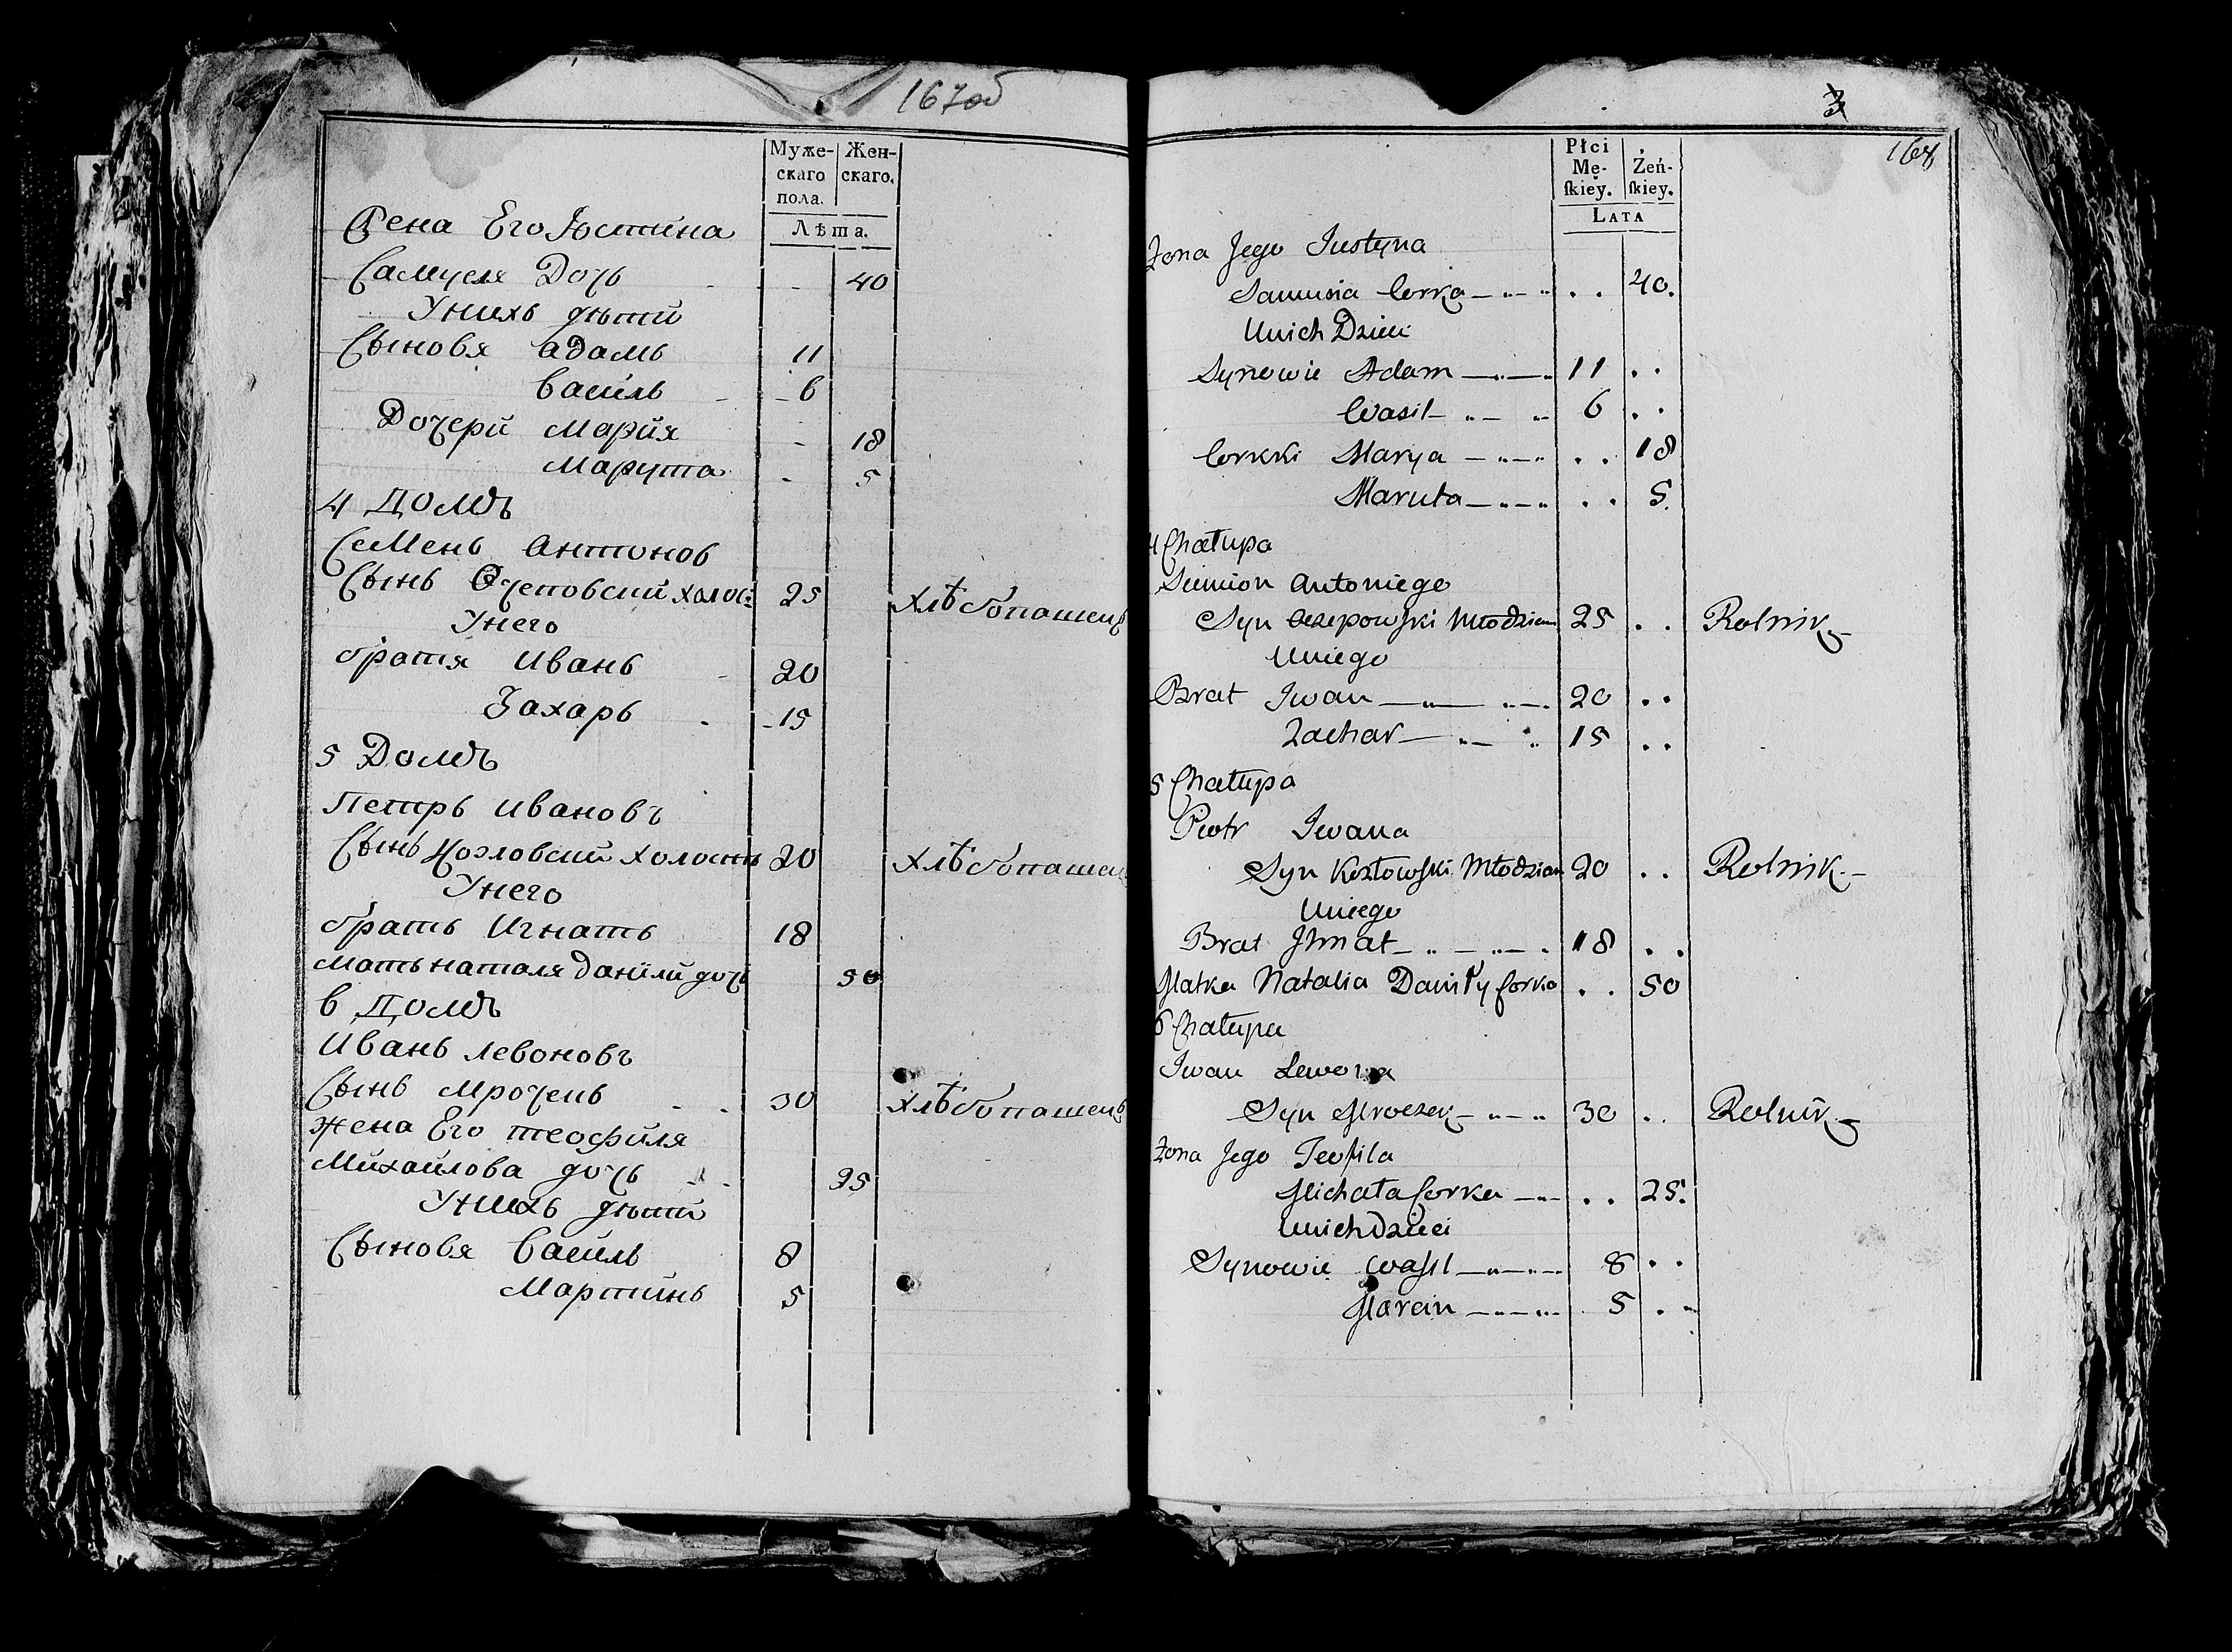 167об
Муже- Жен-
скаго скаго.
пола.
Лѣта.
Жена Его Юстина
Самуеля Дочь - 40
Унихъ дѣти
Сыновя Адамъ 11
Василь 6
Дочери Марйя - 18
Марута - 5
4 Домъ
Семенъ Антонов
Сынъ холос: 25 Хлѣбопашецъ
Унего
братя Иванъ 20
Захаръ 15
5 Домъ
Петръ Ивановъ
Сынъ Козловскии холостъ 20 Хлѣбопашец
Унего
братъ Игнатъ 18
Мать наталя Данйли дочь 50
6 Домъ
Иванъ Левоновъ
Сынъ Мрочекъ 30 Хлѣбопашецъ
Жена Его теофйля
Михайлова дочь 25
Унихъ дѣти
Сыновя Василь 8
Мартинъ 5
3
168
Płci
Mę- Żeń-
ſkiey. ſkiey.
LATA
Żona Jego Justyna
Corka . . 40.
Unich Dzieci
Synowie Adam 11 . .
Wasil 6 . .
Corkki Marya . . 18
Maruta . . 5.
4 Chałupa
Siemion Antoniego
Syn Oczepowſki Młodzian 25 . . Rolnik
Uniego
Brat Iwan 20 . .
Zachar 15 . .
5 Chałupa
Piotr Iwana
Syn Kozłowſki Młodzian 20 . . Rolnik
Uniego
Brat Ihnat 18 . .
Matka Natalia Daniły Corka . . 50
6 Chałupa
Iwan Lewona
Syn Mroczek 30 . . Rolnik
Żona Jego Teofila
Michała Corka . . 25.
Unich dzieci
Synowie Waſil 8 . .
Marcin 5 . .